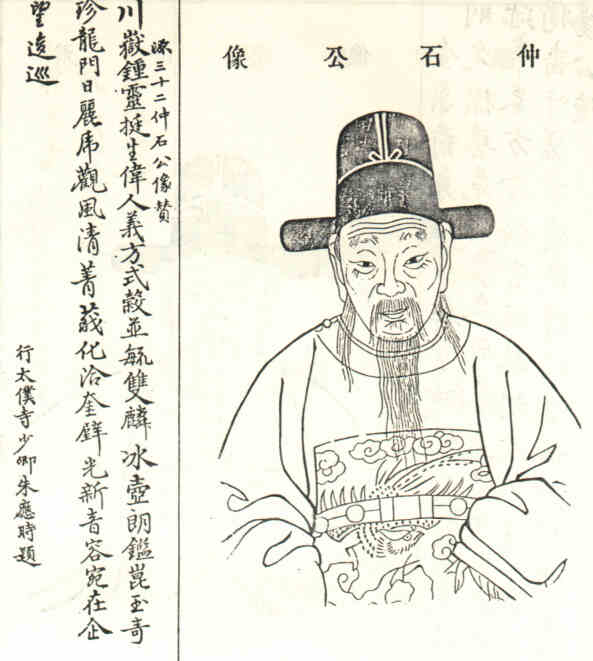 仲石公像
三十二仲石公像贊
川嶽鍾靈挺生偉人義方式穀並毓雙麟冰壺朗鑑崑玉奇
珍龍門日麗虎觀風清菁莪化洽奎璧光新音容宛在企
望逡巡
行太僕寺少卿朱應時題